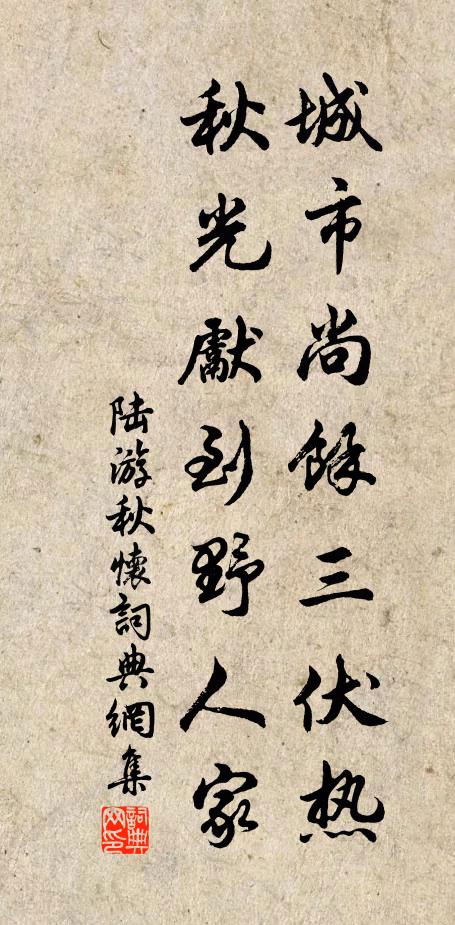 城市尚餘三伏热
秋光獻到野人家
陆游秋懷詞典網集
詞典网印